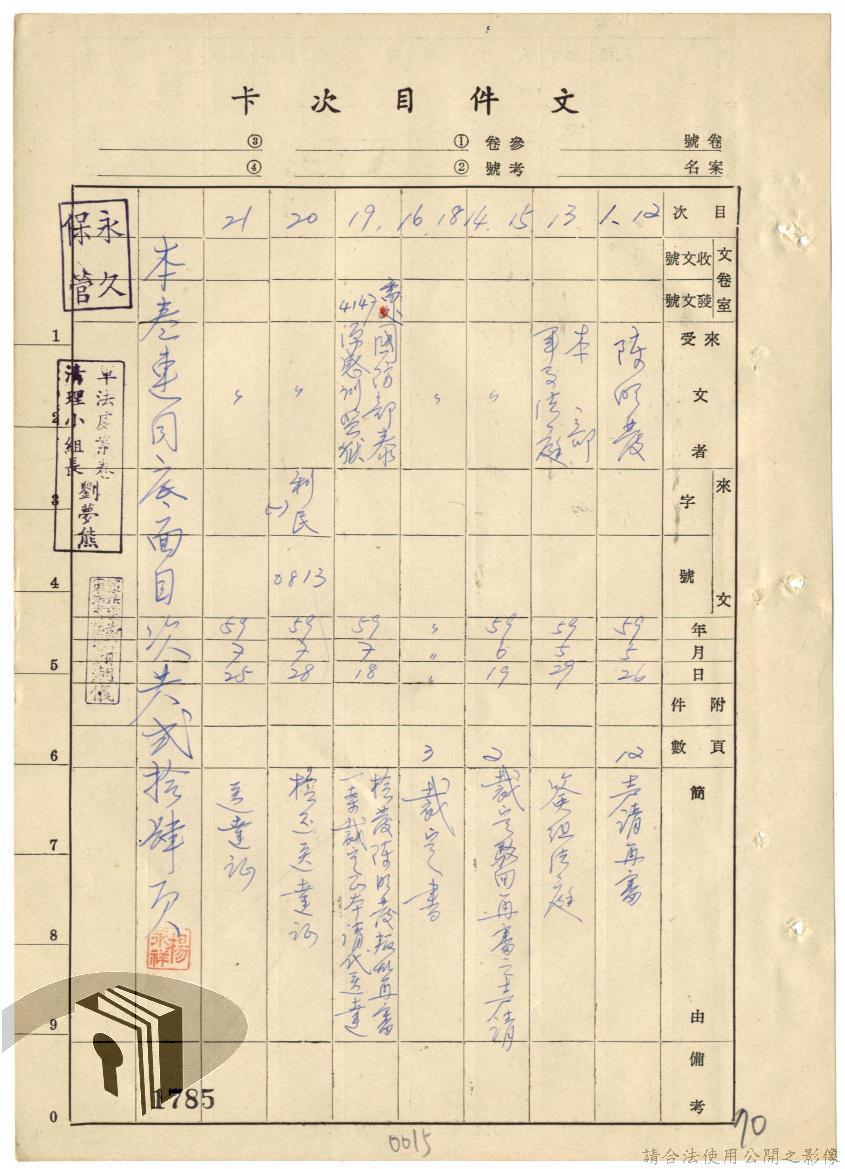 文件目次卡
卷號
案名
參考卷號
①
②
③
④
目次
文卷室
收文號
發文號
來受文者
來文
字號
年月日
附件
頁數
簡由
備考
1、12
陳明發
59
5
26
12
聲請再審
13.
本部
軍事法庭
59
5
29
簽組法庭
14. 15
〃
59
6
19
2
裁定駁回再審之聲請
16. 18
〃
〃
〃
〃
3
裁定書
19.
國防部泰
源感訓監獄
4147
59
7
18
檢發陳明發叛亂再審
一案裁定正本請代送達
20
〃
利民
57
0813
59
7
28
檢送送達証
21
〃
59
7
25
送達証
本卷連同底面目次共貳拾肆頁
楊永祥
永久保管
軍法處案卷
清理小組長
劉夢熊
1
2
3
4
5
6
7
8
9
0
1785
0015
70
請合法使用公開之影像